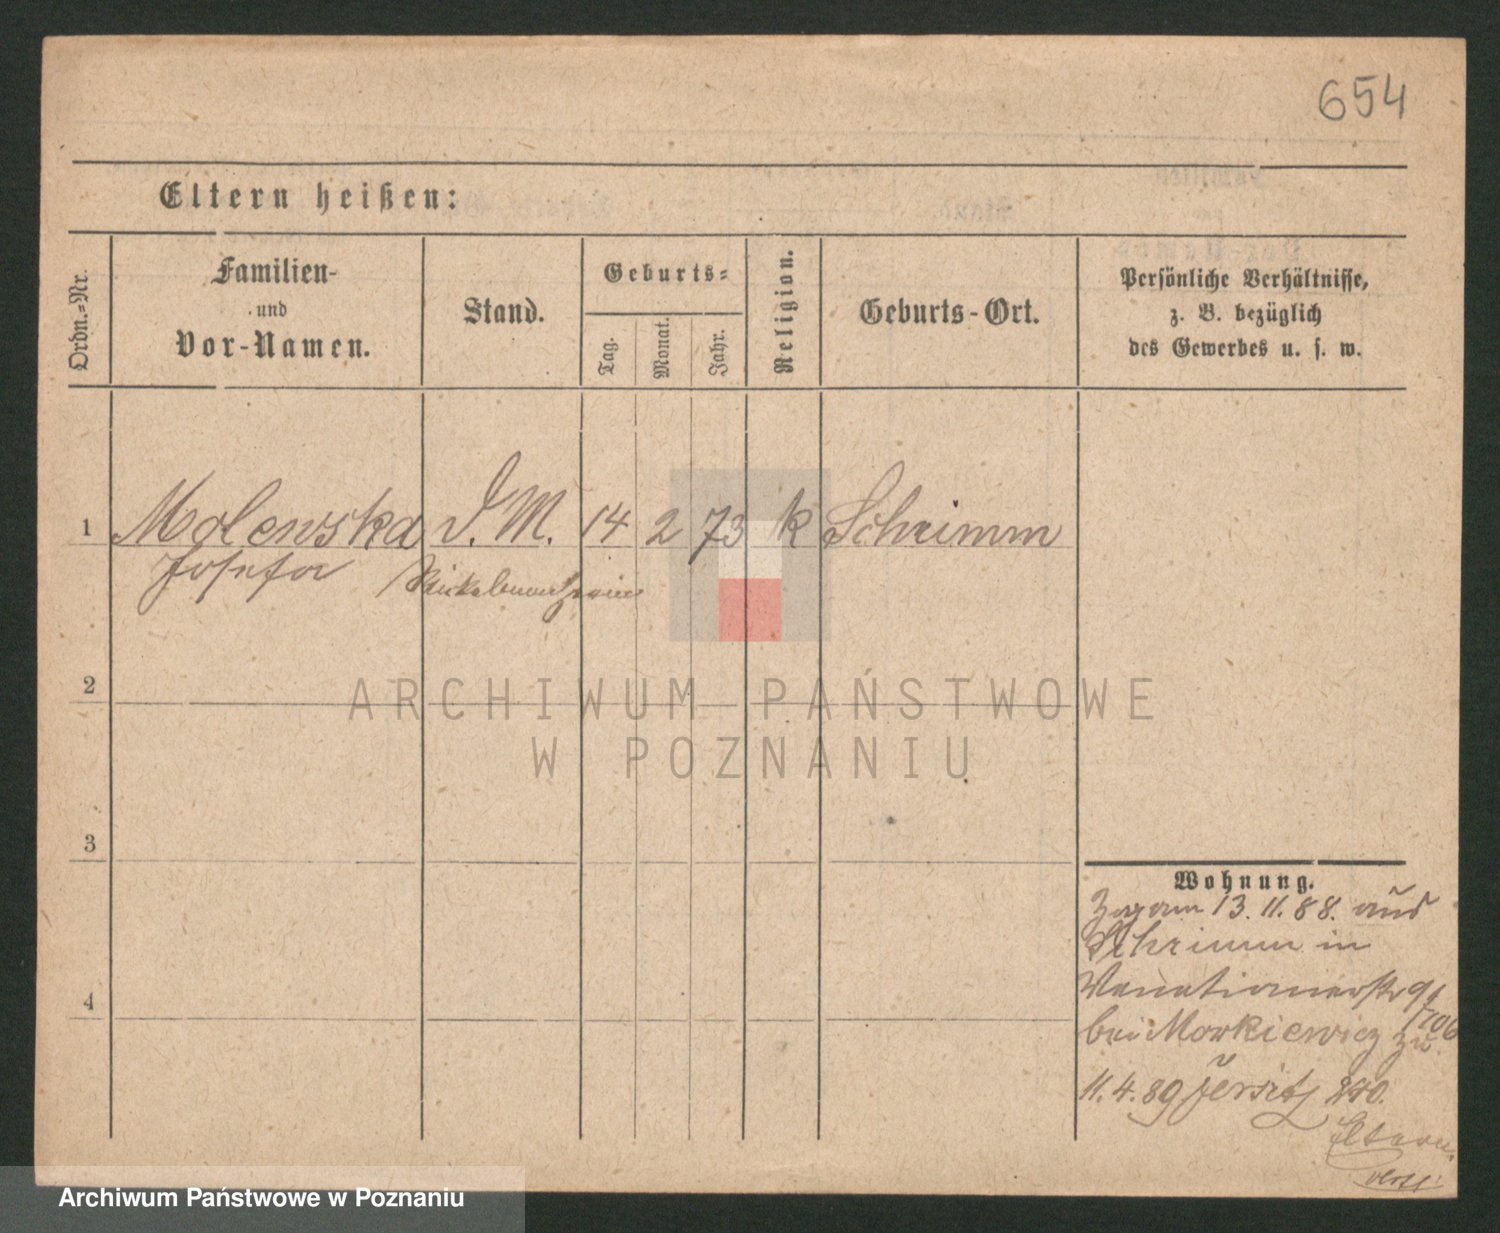 654
Eltern heißen:
Ordn.=Nr.
Familien-
und
Vor-Namen.
Stand.
Geburts=
Tag.
Monat.
Jahr.
Religion.
Geburts-Ort.
Persönliche Verhältnisse,
z. B. bezüglich
des Gewerbes u. s. w.
1 Molewska D. M. 14 2 73 k Schrimm
Josefa
2
ARCHIWUM PAŃSTWOWE
W POZNANIU
3
4
Wohnung.
Zog am 13.11.88. aus
Schrimm in
Venetianerstr 9
bei Morkiewicz zu
11.4.89 Jersitz
Eltern.
Archiwum Państwowe w Poznaniu